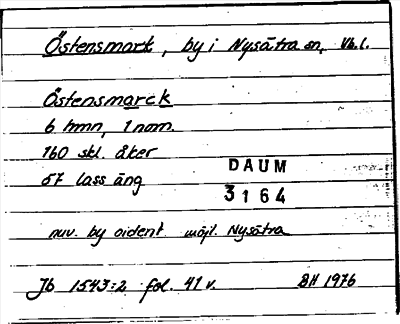 Östensmark, by i Nysätra sn, Vb.l.
Östensmarck
6 hmn, 1 nom.
160 skl. åker
DAUM
57 lass äng
3164
nuv. by oident. möjl. Nysätra
Jb 1543:2 fol. 41 v. BH 1976